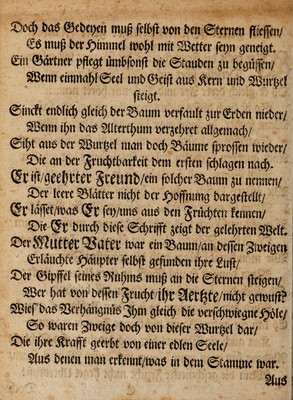 Doch das Gedeyen muß selbst von den Sternen fliessen/
Es muß der Himmel wohl mit Wetter seyn geneigt.
Ein Gärtner pflegt ümbsonst die Stauden zu begüssen/
Wenn einmahl Seel und Geist aus Kern und Wurtzel
steigt.
Sinckt endlich gleich der Baum verfault zur Erden nieder/
Wenn ihn das Alterthum verzehret allgemach/
Siht aus der Wurtzel man doch Bäume sprossen wieder/
Die an der Fruchtbarkeit dem ersten schlagen nach.
Er ist/geehrter Freund/ein solcher Baum zu nennen/
Der leere Blätter nicht der Hoffnung dargestellt/
Er lässet/was Er sey/uns aus den Früchten kennen/
Die Er durch diese Schrifft zeigt der gelehrten Welt.
Der Mutter Vater war ein Baum/an dessen Zweigen
Erlauchte Häupter selbst gefunden ihre Lust/
Der Gipffel seines Ruhms muß an die Sternen steigen/
Wer hat von dessen Frucht/ihr Aertzte/nicht gewust?
Wies das Verhängnüs Ihm gleich die verschwiegne Höle/
So waren Zweige doch von dieser Wurtzel dar/
Die ihre Krafft geerbt von einer edlen Seele/
Aus denen man erkennt/was in dem Stamme war.
Aus